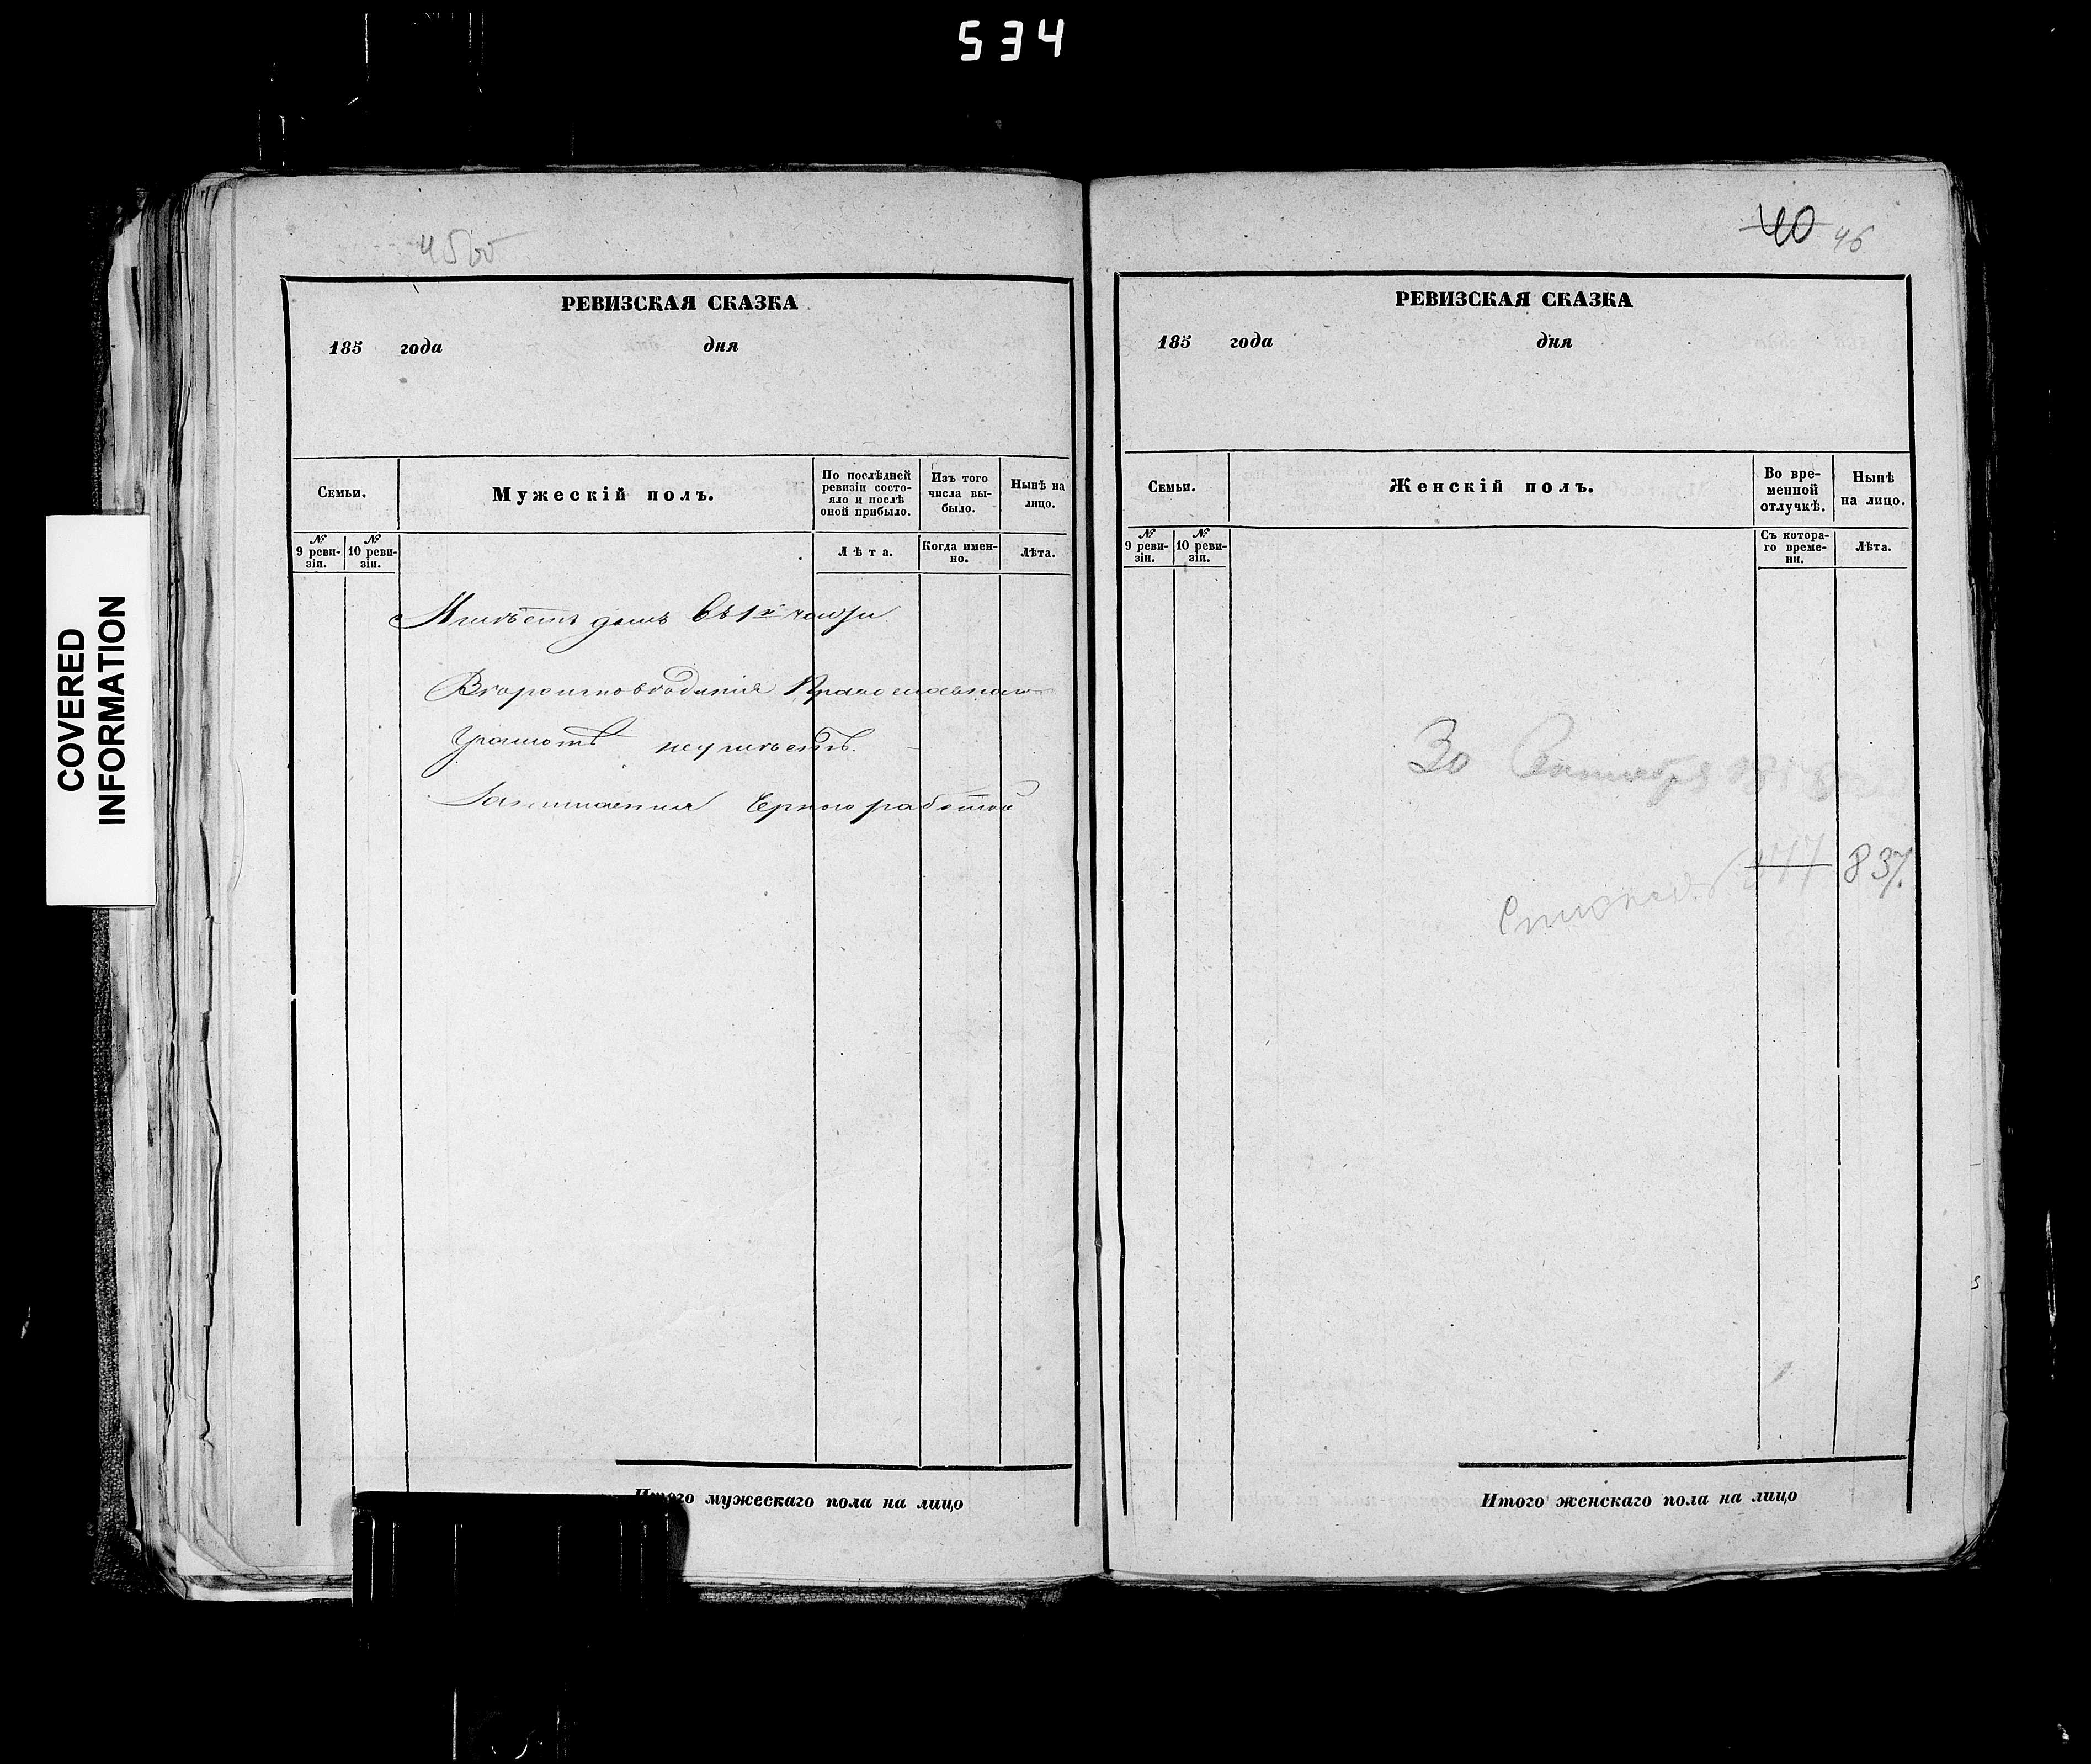 534
COVERED
INFORMATION
45об
РЕВИЗСКАЯ СКАЗКА
185 года дня
Семьи.
Мужескій полъ.
По послѣдней ревизіи состояло и послѣ оной прибыло.
Изъ того числа выбыло.
Нынѣ на лицо.
№ 9 ревизіи.
№ 10 ревизіи.
Лѣта.
Когда именно.
Лѣта.
Имѣетъ домъ въ 1й части
Вѣроисповѣданія Православнаго
Грамотѣ неумѣетъ.
Занимается Чорною работой
Итого мужескаго пола на лицо
40 46
РЕВИЗСКАЯ СКАЗКА
185 года дня
Семьи.
Женскій полъ.
Во временной отлучкѣ.
Нынѣ на лицо.
№ 9 ревизіи.
№ 10 ревизіи.
Съ котораго времени.
Лѣта.
30 Сентября 185
837.
Итого женскаго пола на лицо